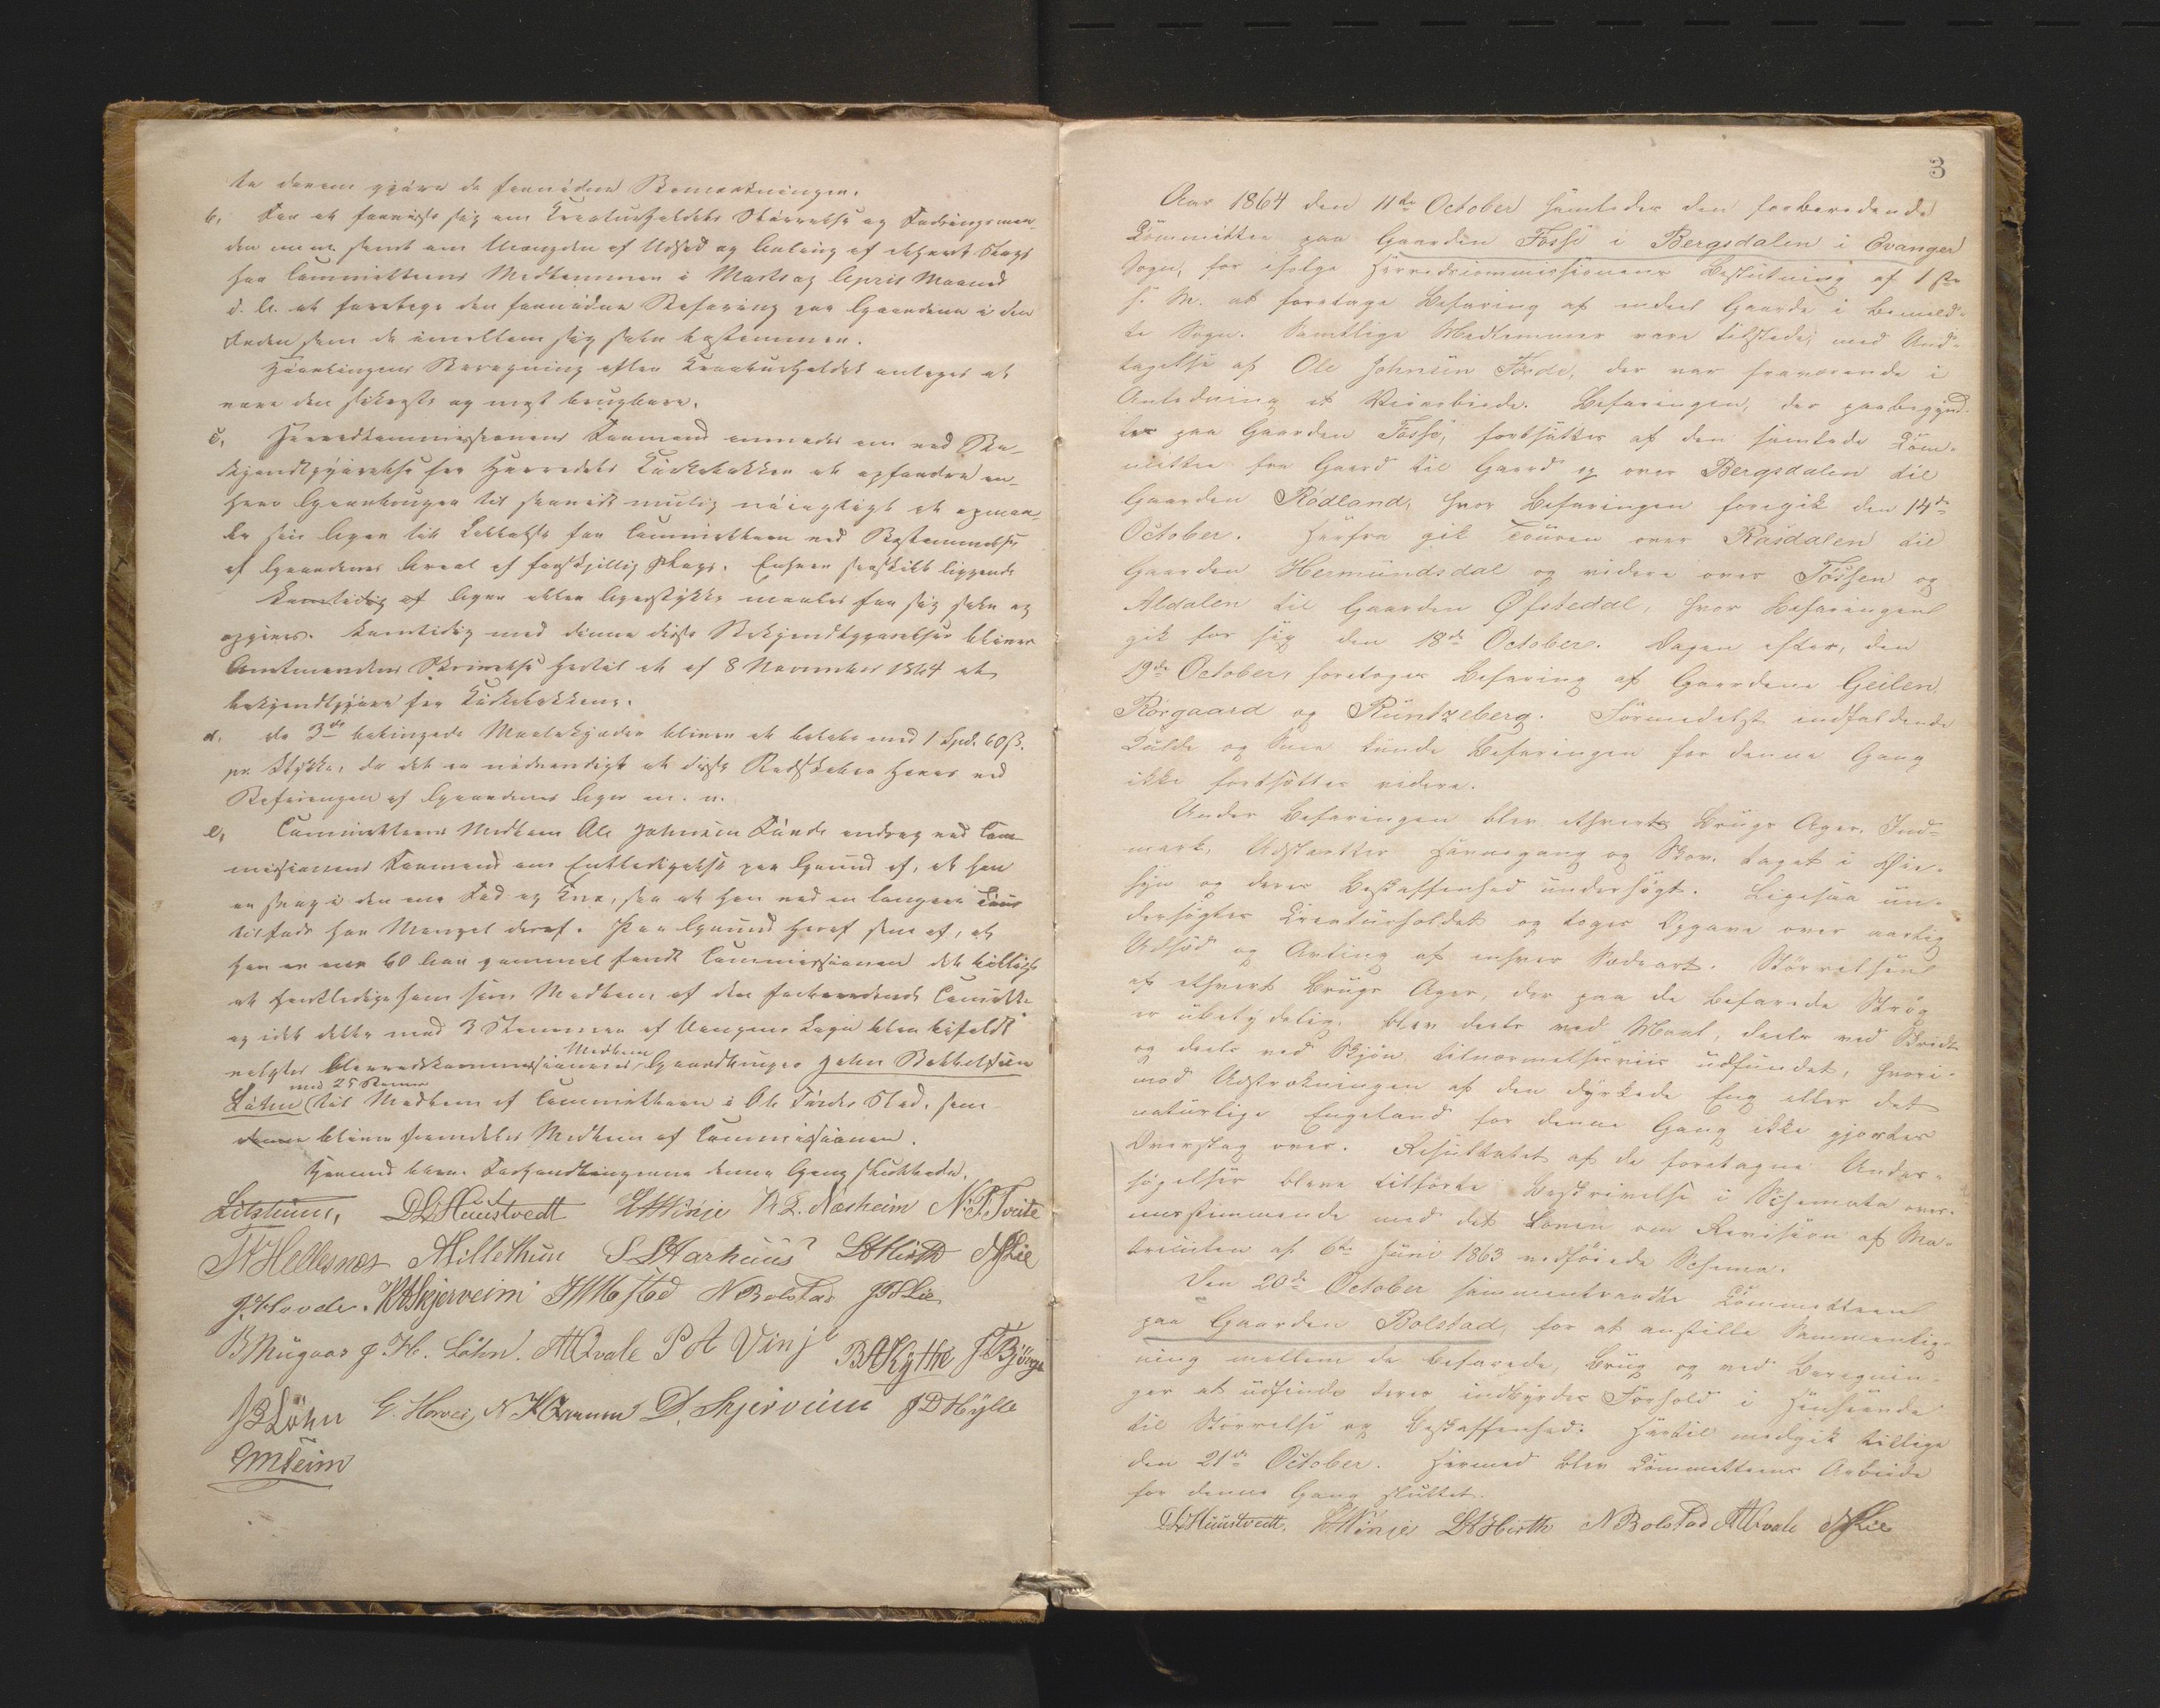 ta derom gjøre de fornødne Bemærkninger.
b, For at forvisse sig om Creaturholdets Størrelse og Fodringsmaa-
den m. m. samt om Mængden af Udsæd og Avling af ethvert Slags
har Committeens Medlemmer i Marts og April Maaned
d. A. at foretage den fornødne Befaring paa Gaardene i den
Orden som de imellem sig selv bestemmer.
Høavlingens Beregning efter Creaturholdet antages at
være den sikreste og mest brugbare.
c, Herredscommissionens Formand anmodes om ved Be-
kjendtgjørelse fra Herredets Kirkebakker at opfordre en-
hver Gaardbruger til saavidt mulig nøiagtigt at opmaa-
le sin Ager til Lettelse for Committeen ved Bestemmelse
af Gaardenes Areal af forskjellig Slags. Enhver særskilt liggende
Samtidig af Ager eller Agerstykke maales for sig selv og
opgives. Samtidig med denne disse Bekjendtgjørelser bliver
Amtmandens Skrivelse hertil at af 8 November 1864 at
bekjendtgjøre fra Kirkebakkene.
d. De 3de betingede Maalekjæder bliver at betale med 1 Spd. 60 ß.
pr. Stykke, da det er nødvendigt at disse Redskaber haves ved
Befaringen af Gaardenes Ager m. v.
e, Committeens Medlem Ole Johnsen Førde androg ved Com-
missionens Formand om Entledigelse paa Grund af, at han
er svag i den ene Fod og Knæ, saa at han ved en længere Tour
tilfods har Mangel deraf. Paa Grund heraf som af, at
han er over 60 Aar gammel fandt Commissionen det billigt
at entledige ham som Medlem af den forberedende Comitte
og idet dette med 3 Stemmer af Vangens Sogn blev bifaldt
valgtes Herredscommissionens Medlem Gaardbruger John Bottolfsen
Løhn med 25 Stemmer til Medlem af Committeen i Ole Førdes Sted, som
denne bliver fremdeles Medlem af Commissionen.
Hermed bleve Forhandlingerne denne Gang sluttede.
Lilshuus, DL Huustvedt LH Vinje N. L. Næsheim N. P. Tveite
TA Hellesnæs A Gillethun S. S Aarhuus LA Hirth N Lie
J. Hovde. KA Skjerveim JM Mestad N Bolstad JP Lie
B Mugaas J. H. Løhn. A Qvale P A Vinje BA Kythe J T Bjørge
JB Løhn E. Horvei, N H Grimen D. Skjerveim J D Hylle
GM Seim
3
Aar 1864 den 11te October samledes den forberedende
Committee paa Gaarden Fosse i Bergsdalen i Evanger
Sogn, for ifølge Herredscommissionens Beslutning af 1ste
s. M. at foretage Befaring af endeel Gaarde i bemeld-
te Sogn. Samtlige Medlemmer vare tilstede, med Und-
tagelse af Ole Johnsen Førde, der var fraværende i
Anledning et Veiarbeide. Befaringen, der paabegynd-
tes paa Gaarden Fosse, fortsattes af den samlede Com-
mittee fra Gaard til Gaard og over Bergsdalen til
Gaarden Rødland, hvor Befaringen foregik den 14de
October. Herfra gik Touren over Rasdalen til
Gaarden Hermundsdal og videre over Fossen og
Aldalen til Gaarden Øfstedal, hvor Befaringen
gik for sig den 18de October. Dagen efter, den
19de October, foretoges Befaring af Gaardene Geilen,
Rørgaard og Runtzeberg. Formedelst indfaldende
Kulde og Snee kunde Befaringen for denne Gang
ikke fortsættes videre.
Under Befaringen blev ethvert Brugs Ager, Ind-
mark, Udslaatter Havnegang og Skov, taget i Øie-
syn og deres Beskaffenhed undersøgt. Ligesaa un-
dersøgtes Creaturholdet og toges Opgave over aarlig
Udsæd og Avling af enhver Sædeart. Størrelsen
af ethvert Brugs Ager, der paa de befarede Strøg
er ubetydelig, blev deels ved Maal, deels ved Skridt
og deels ved Skjøn tilnærmelsesviis udfundet, hvori-
mod Udstrækningen af den dyrkede Eng eller det
naturlige Engeland for denne Gang ikke gjordes
Overslag over. Resultatet af de foretagne Under-
søgelser bleve tilførte Beskrivelse i Schemata over-
eensstemmende med det Loven om Revision af Ma-
triculen af 6te Juni 1863 vedføiede Schema.
Den 20de October sammentraadte Committeen
paa Gaarden Bolstad, for at anstille Sammenlig-
ning mellem de befarede Brug og ved Beregnin-
ger at udfinde deres indbyrdes Forhold i Henseende
til Størrelse og Beskaffenhed. Hertil medgik tillige
den 21de October. Hermed blev Committeens Arbeide
for denne Gang sluttet.
DL Huustvedt. LH Vinje LA Hirth N Bolstad A Qvale N Lie